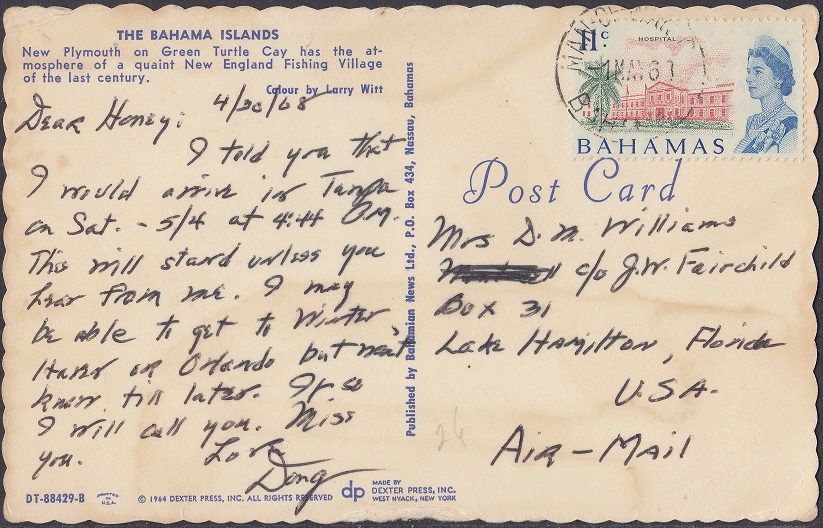 THE BAHAMA ISLANDS
New Plymouth on Green Turtle Cay has the at-
mosphere of a quaint New England Fishing Village
of the last century.
Colour by Larry Witt
4/30/68
Dear Honey:
I told you that
I would arrive in Tampa
on Sat. - 5/4 at 4:44 P.M.
This will stand unless you
hear from me. I may
be able to get to Winter
Haven or Orlando but won't
know till later. If so
I will call you. Miss
you. Love
Doug
DT-88429-B
PRINTED IN U.S.A.
© 1964 DEXTER PRESS, INC. ALL RIGHTS RESERVED
dp
MADE BY
DEXTER PRESS, INC.
WEST NYACK, NEW YORK
Published by Bahamian News Ltd., P.O. Box 434, Nassau, Bahamas
11c
HOSPITAL
BAHAMAS
1 MAY 68
Post Card
Mrs D. M. Williams
c/o J.W. Fairchild
Box 31
Lake Hamilton, Florida
U.S.A.
Air-Mail
26